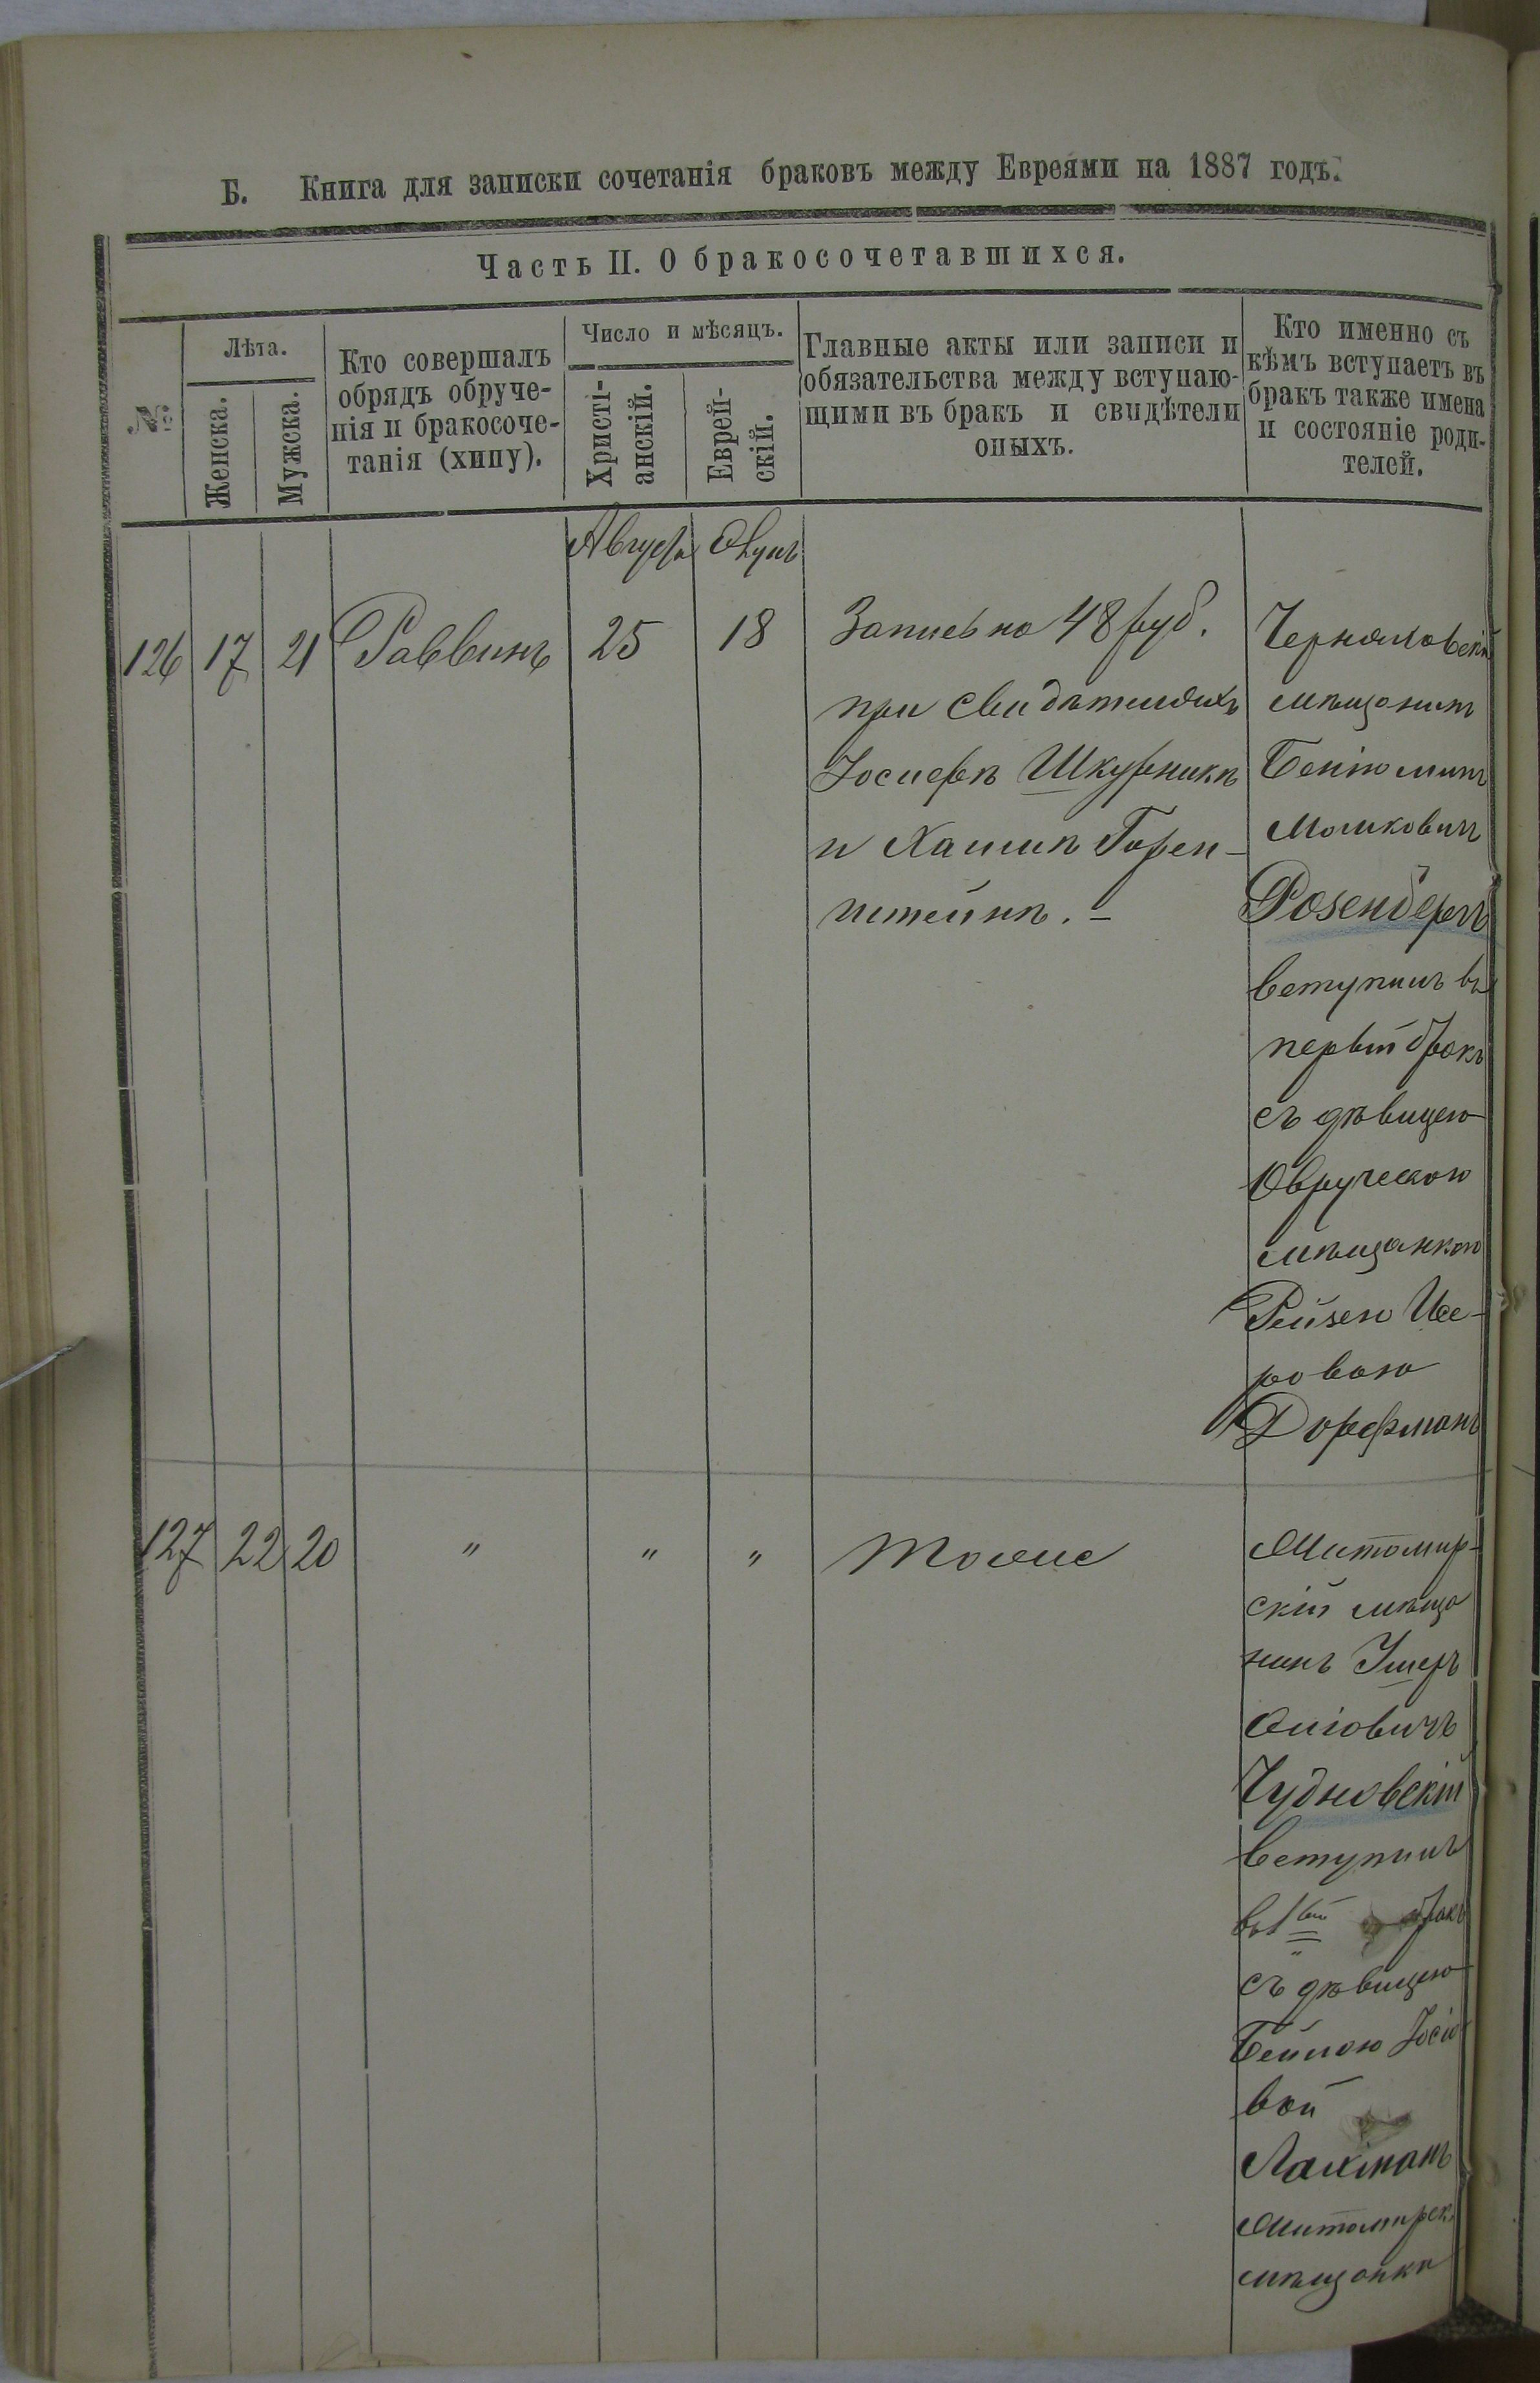 Б. Книга для записки сочетанія браковъ между Евреями на 1887 годъ.
Часть II. О бракосочетавшихся.
№
Лѣта.
Женска.
Мужска.
Кто совершалъ
обрядъ обруче-
нія и бракосоче-
танія (хипу).
Число и мѣсяцъ.
Христі-
анскій.
Еврей-
скій.
Главные акты или записи и
обязательства между вступаю-
щими въ бракъ и свидѣтели
оныхъ.
Кто именно съ
кѣмъ вступаетъ въ
бракъ также имена
и состояніе роди-
телей.
Августа
126 17 21 Раввинъ 25 18
Запись на 48 руб.
при свидѣтеляхъ
Іосифѣ Шкурникѣ
и Хаимѣ Горен-
штейнѣ. –
мѣщанинъ
Беніоминъ
Мошковичъ
Розенбергъ
вступилъ въ
первый бракъ
съ дѣвицею
Овручскою
мѣщанкою
Рейзею Исе-
ровою
Дорфманъ
127 22 20 " " " Тоже
Житомир-
скій мѣща
нинъ Ушеръ
Чудновскій
вступилъ
въ 1ый бракъ
съ дѣвицею
Бейлою Іосіо
вой
Лахманъ
Житомирск.
мѣщанка